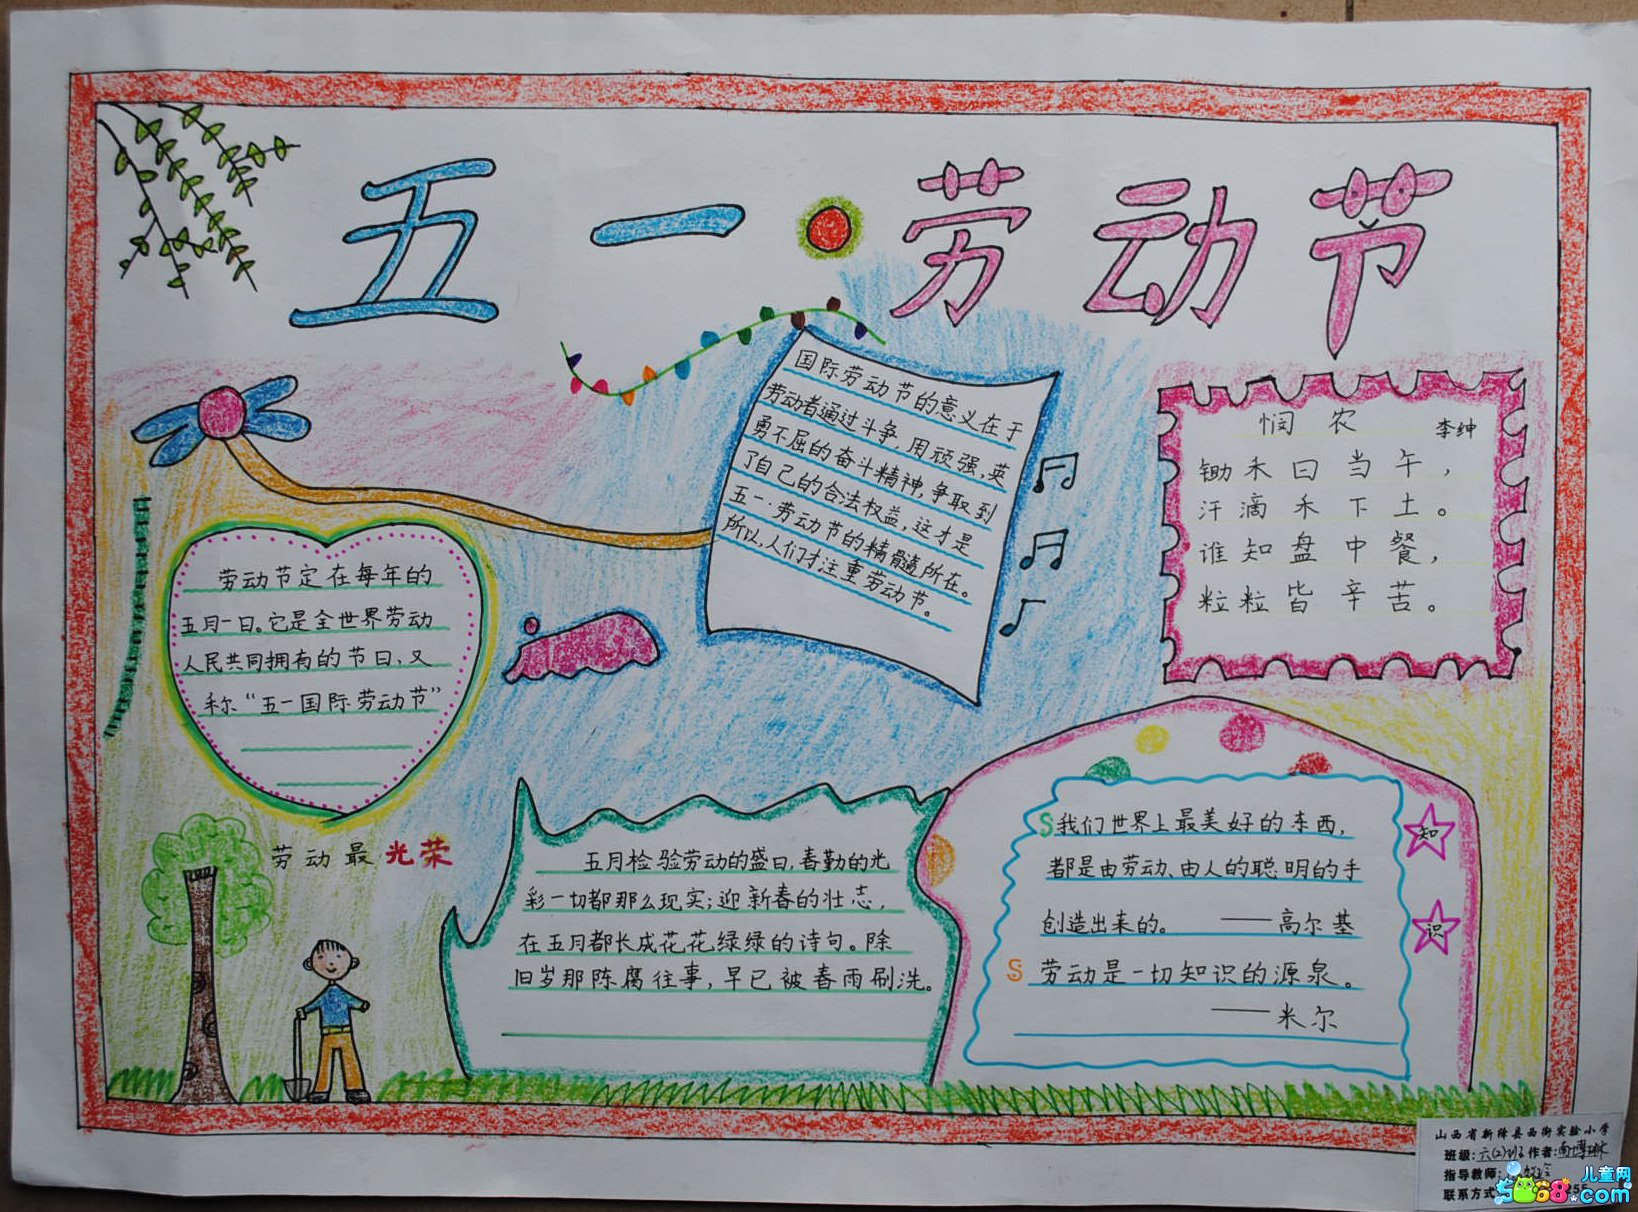 五一·劳动节
国际劳动节的意义在于
劳动者通过斗争,用顽强,英
勇不屈的奋斗精神,争取到
了自己的合法权益,这才是
五一·劳动节的精髓所在。
所以,人们才注重劳动节。
悯农 李绅
锄禾日当午,
汗滴禾下土。
谁知盘中餐,
粒粒皆辛苦。
劳动节定在每年的
五月一日。它是全世界劳动
人民共同拥有的节日,又
称“五一国际劳动节”
劳动最光荣
五月检验劳动的盛日,春勤的光
彩一切都那么现实;迎新春的壮志,
在五月都长成花花绿绿的诗句。除
旧岁那陈腐往事,早已被春雨刷洗。
S我们世界上最美好的东西,
都是由劳动、由人的聪明的手
创造出来的。 ——高尔基
S 劳动是一切知识的源泉。
——米尔
知
识
山西省新绛县西街实验小学
班级:六(2)班 作者:
指导教师:
联系方式
儿童网
5068.com